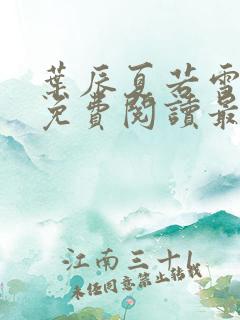 葉辰夏若雪
免費閱讀最
江南三十
未經同意禁止轉載